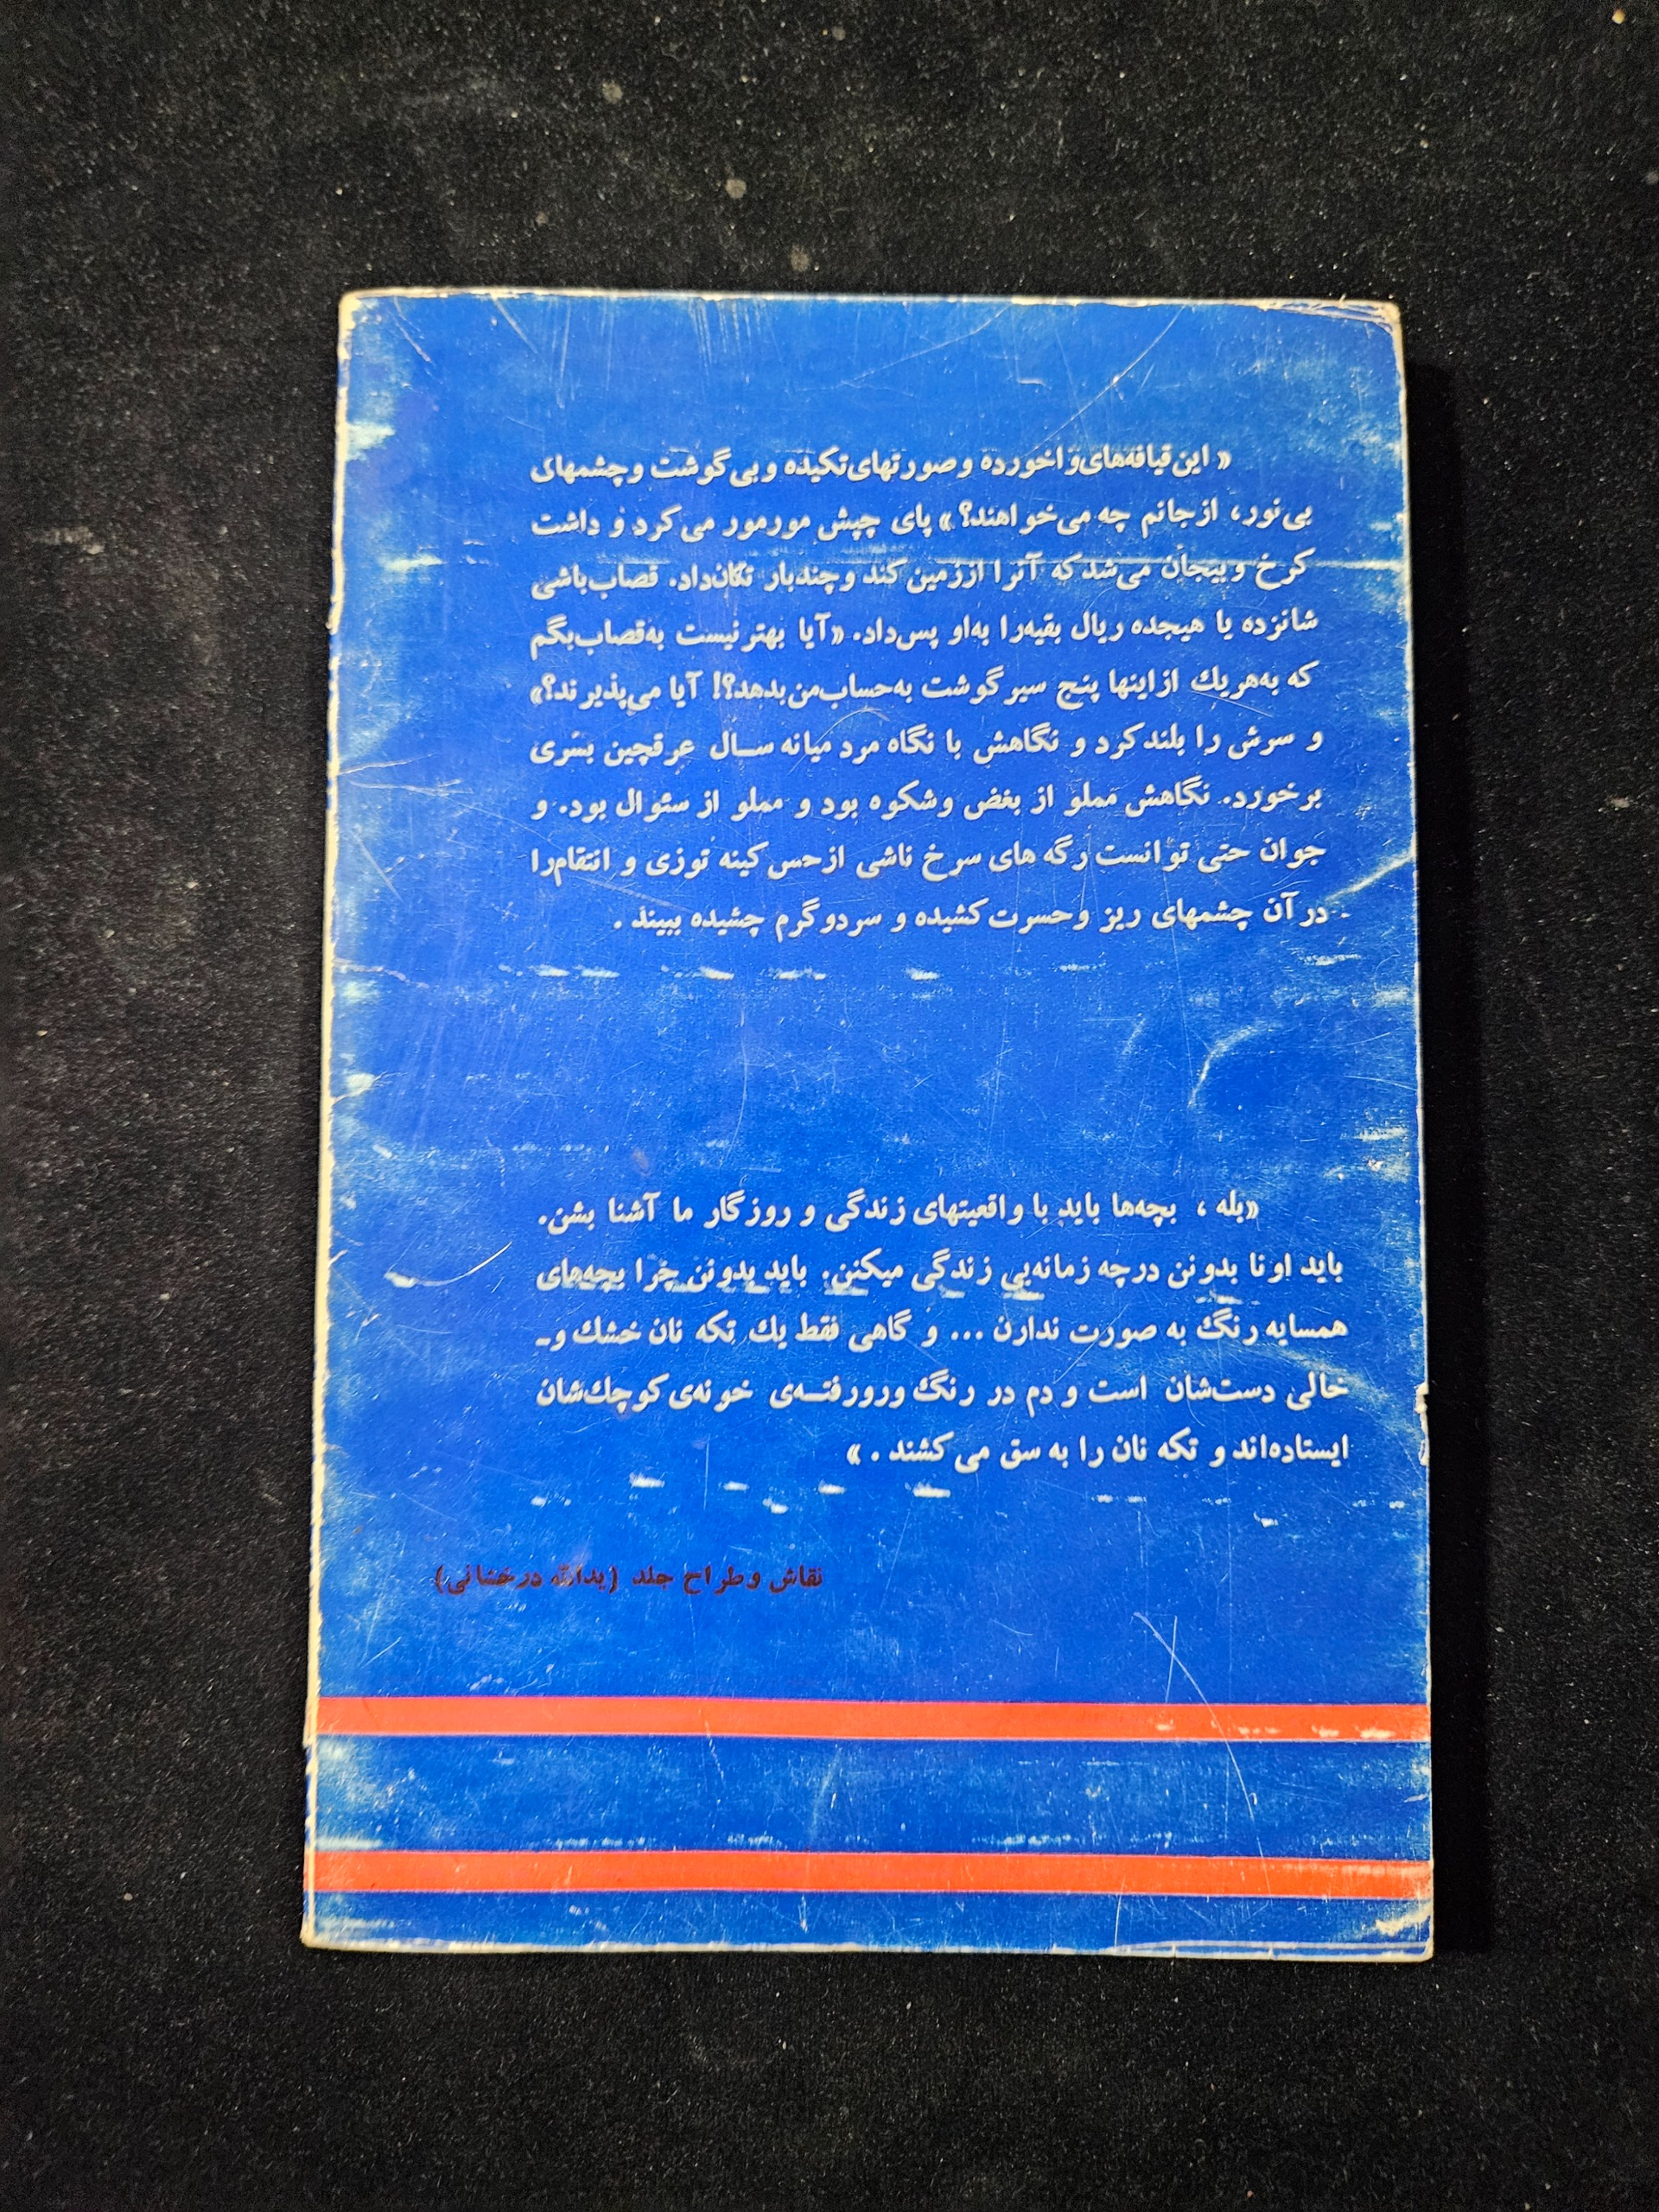 « این قیافه‌های واخورده و صورتهای تکیده و بی‌گوشت و چشمهای
بی‌نور، از جانم چه می‌خواهند؟» پای چپش مورمور می‌کرد و داشت
کرخ و بیجان می‌شد که آنرا از زمین کند و چندبار تکان داد. قصاب‌باشی
شانزده یا هیجده ریال بقیه‌را به‌او پس‌داد. «آیا بهتر نیست به‌قصاب‌بگم
که به‌هریك ازاینها پنج سیر گوشت به‌حساب‌من بدهد؟! آیا می‌پذیرند؟»
و سرش را بلند کرد و نگاهش با نگاه مرد میانه ســال عرقچین بسری
برخورد. نگاهش مملو از بغض و شکوه بود و مملو از سئوال بود. و
جوان حتی توانست رگه های سرخ ناشی از حس کینه توزی و انتقام‌را
در آن چشمهای ریز و حسرت کشیده و سردوگرم چشیده ببیند .
«بله ، بچه‌ها باید با واقعیتهای زندگی و روزگار ما آشنا بشن.
باید اونا بدونن درچه زمانه‌یی زندگی میکنن. باید بدونن چرا بچه‌های
همسایه رنگ به صورت ندارن ... و گاهی فقط یك تکه نان خشك و-
خالی دست‌شان است و دم در رنگ ورورفتــه‌ی خونه‌ی کوچك‌شان
ایستاده‌اند و تکه نان را به سق می‌کشند . »
نقاش و طراح جلد (یدالله درخشانی)